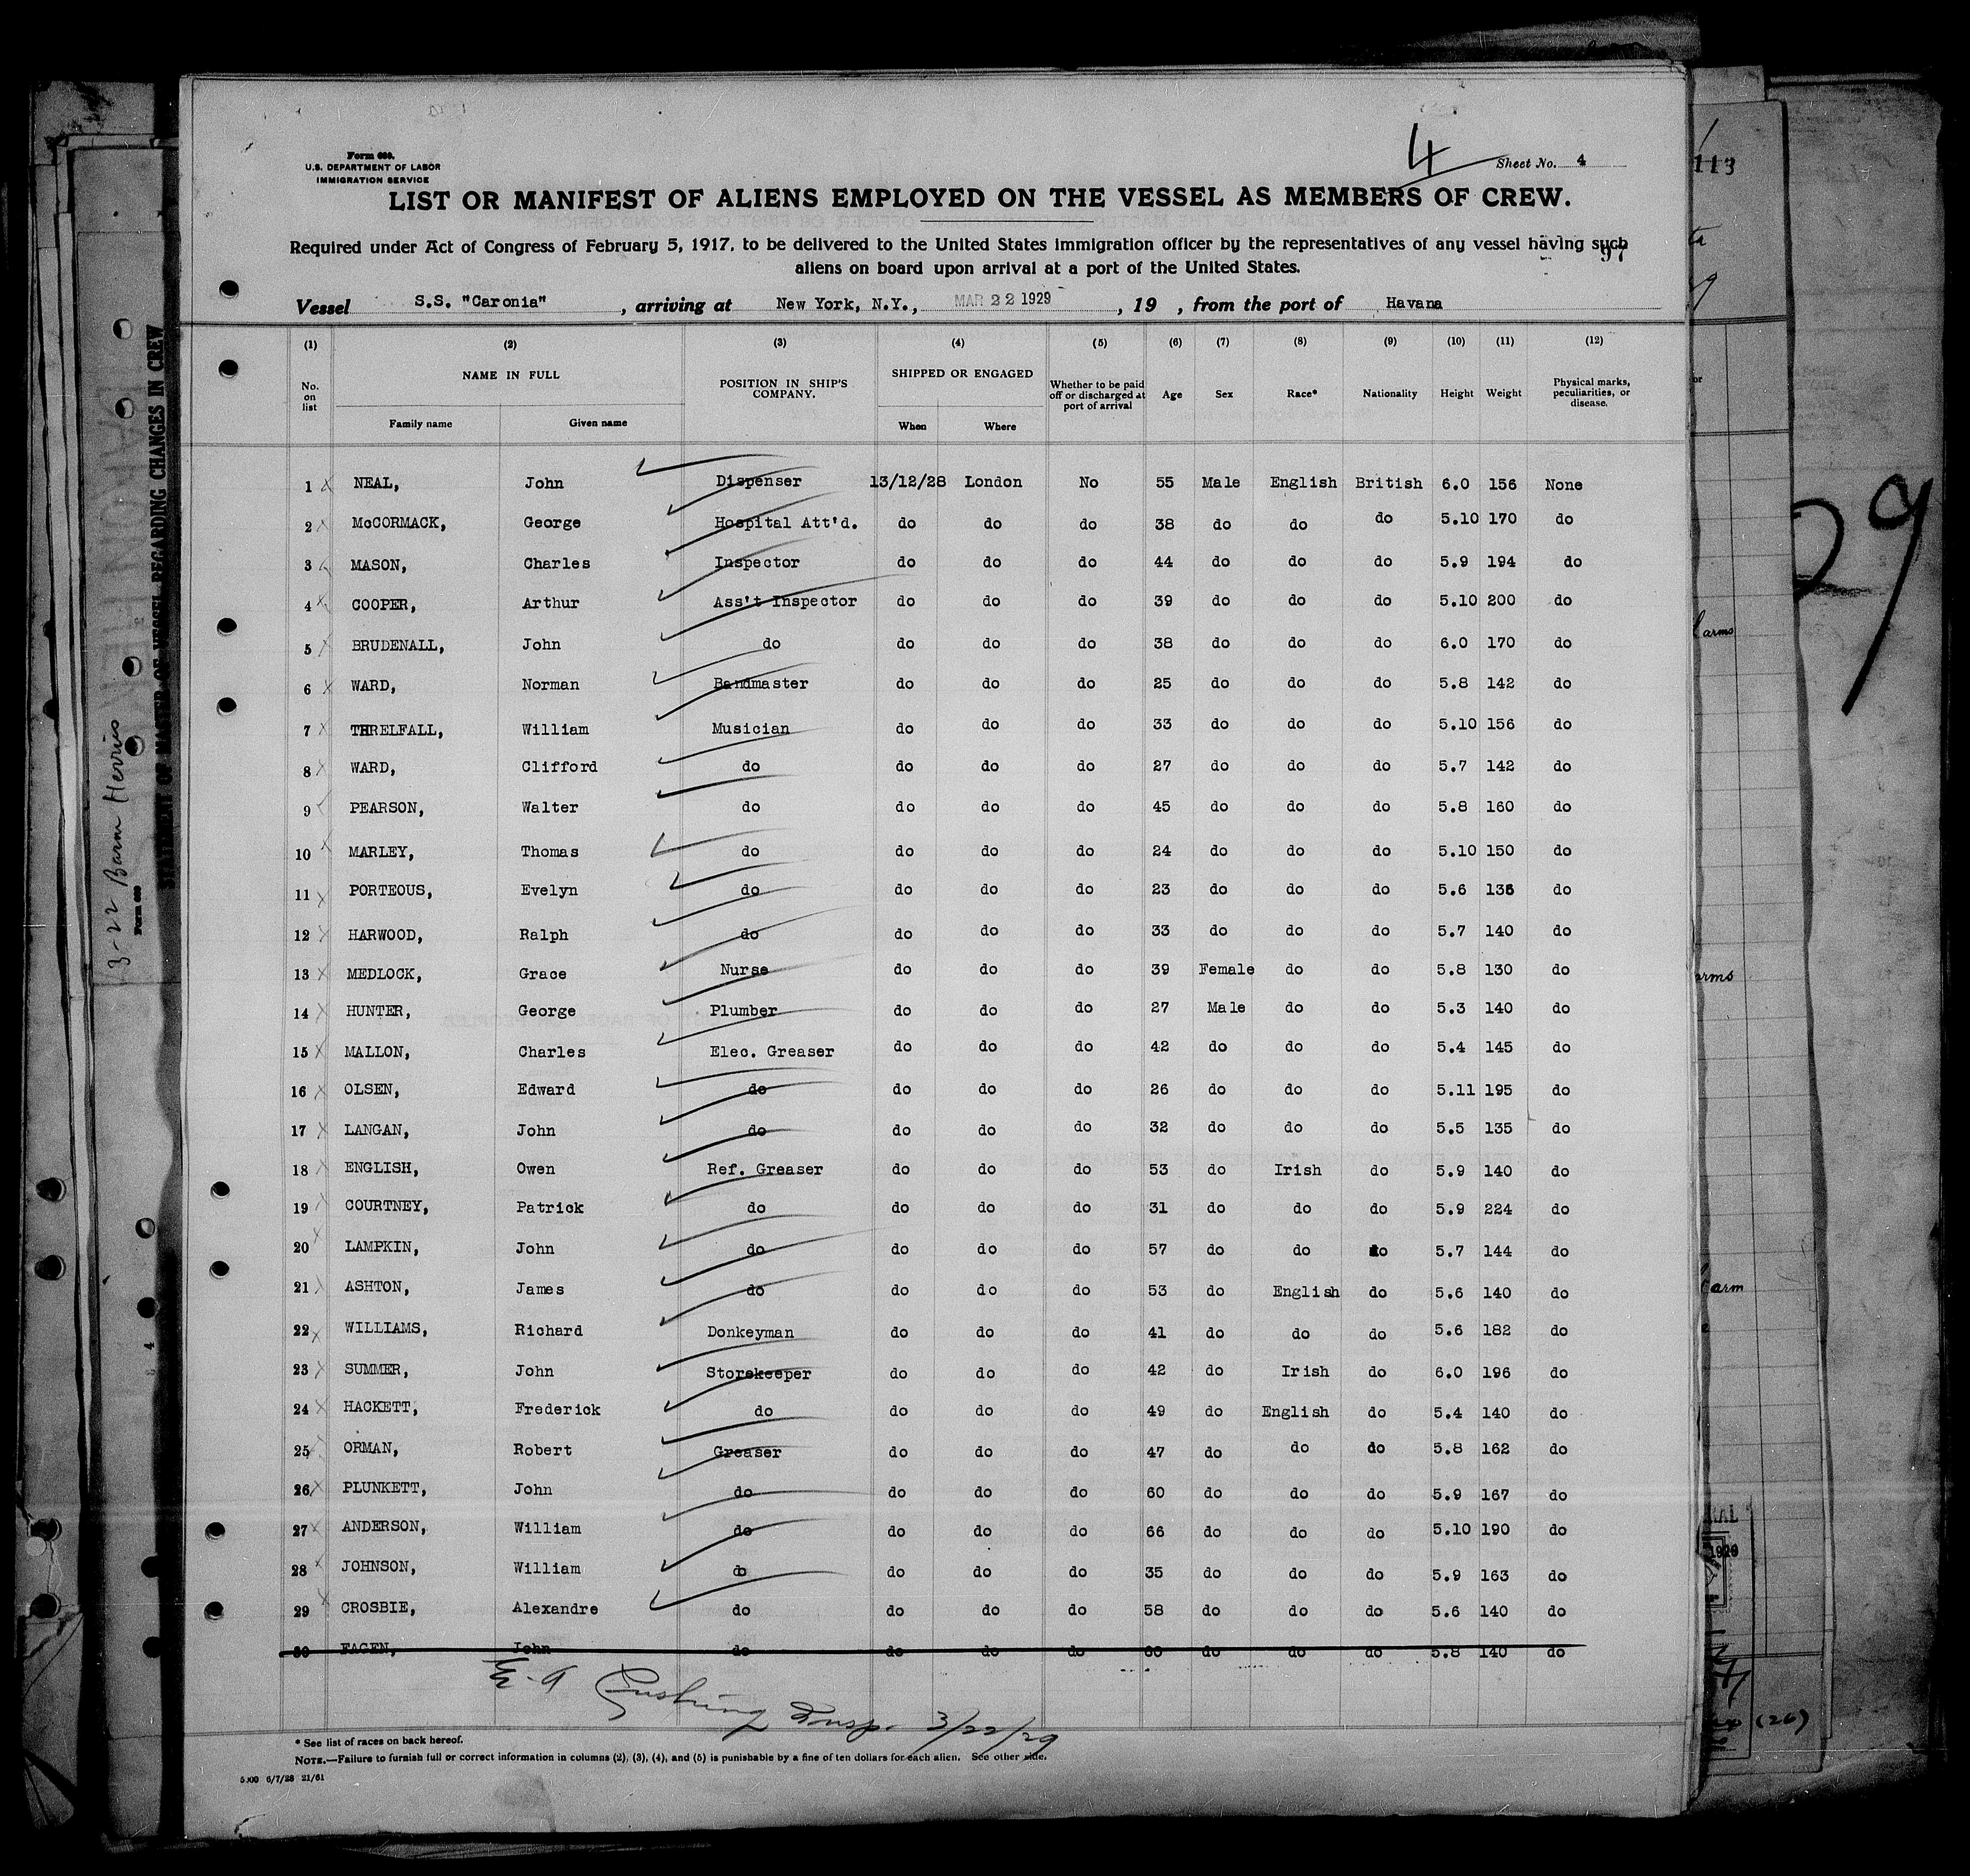 Form 680.
U.S. DEPARTMENT OF LABOR
IMMIGRATION SERVICE
4
Sheet No. 4
LIST OR MANIFEST OF ALIENS EMPLOYED ON THE VESSEL AS MEMBERS OF CREW.
Required under Act of Congress of February 5, 1917, to be delivered to the United States immigration officer by the representatives of any vessel having such
aliens on board upon arrival at a port of the United States.
97
Vessel S.S. "Caronia" , arriving at New York, N.Y., MAR 22 1929 , 19 , from the port of Havana
(1) (2) (3) (4) (5) (6) (7) (8) (9) (10) (11) (12)
No. on list NAME IN FULL Family name Given name POSITION IN SHIP'S COMPANY. SHIPPED OR ENGAGED When Where Whether to be paid off or discharged at port of arrival Age Sex Race* Nationality Height Weight Physical marks, peculiarities, or disease.
1 NEAL, John Dispenser 13/12/28 London No 55 Male English British 6.0 156 None
2 McCORMACK, George Hospital Att'd. do do do 38 do do do 5.10 170 do
3 MASON, Charles Inspector do do do 44 do do do 5.9 194 do
4 COOPER, Arthur Ass't Inspector do do do 39 do do do 5.10 200 do
5 BRUDENALL, John do do do do 38 do do do 6.0 170 do
6 WARD, Norman Bandmaster do do do 25 do do do 5.8 142 do
7 THRELFALL, William Musician do do do 33 do do do 5.10 156 do
8 WARD, Clifford do do do do 27 do do do 5.7 142 do
9 PEARSON, Walter do do do do 45 do do do 5.8 160 do
10 MARLEY, Thomas do do do do 24 do do do 5.10 150 do
11 PORTEOUS, Evelyn do do do do 23 do do do 5.6 136 do
12 HARWOOD, Ralph do do do do 33 do do do 5.7 140 do
13 MEDLOCK, Grace Nurse do do do 39 Female do do 5.8 130 do
14 HUNTER, George Plumber do do do 27 Male do do 5.3 140 do
15 MALLON, Charles Elec. Greaser do do do 42 do do do 5.4 145 do
16 OLSEN, Edward do do do do 26 do do do 5.11 195 do
17 LANGAN, John do do do do 32 do do do 5.5 135 do
18 ENGLISH, Owen Ref. Greaser do do do 53 do Irish do 5.9 140 do
19 COURTNEY, Patrick do do do do 31 do do do 5.9 224 do
20 LAMPKIN, John do do do do 57 do do do 5.7 144 do
21 ASHTON, James do do do do 53 do English do 5.6 140 do
22 WILLIAMS, Richard Donkeyman do do do 41 do do do 5.6 182 do
23 SUMMER, John Storekeeper do do do 42 do Irish do 6.0 196 do
24 HACKETT, Frederick do do do do 49 do English do 5.4 140 do
25 ORMAN, Robert Greaser do do do 47 do do do 5.8 162 do
26 PLUNKETT, John do do do do 60 do do do 5.9 167 do
27 ANDERSON, William do do do do 66 do do do 5.10 190 do
28 JOHNSON, William do do do do 35 do do do 5.9 163 do
29 CROSBIE, Alexandre do do do do 58 do do do 5.6 140 do
30 FAGEN, John do do do do 60 do do do 5.8 140 do
E. A Cushing Insp. 3/22/29
* See list of races on back hereof.
NOTE.—Failure to furnish full or correct information in columns (2), (3), (4), and (5) is punishable by a fine of ten dollars for each alien. See other side.
6/7/28 21/61
STATEMENT OF MASTER OF VESSEL REGARDING CHANGES IN CREW
3-22
113
29
arms
arms
arm
(26)